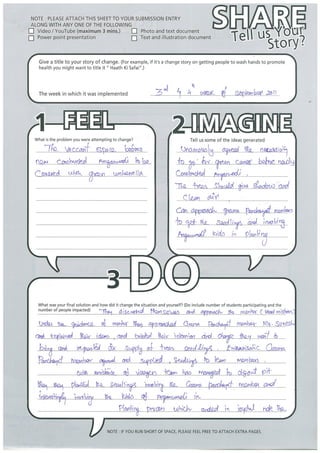 NOTE : PLEASE ATTACH THIS SHEET TO YOUR SUBMISSION ENTRY
ALONG WITH ANY ONE OF THE FOLLOWING
Video / YouTube (maximum 3 mins.)
Photo and text document
Power point presentation
Text and illustration document
SHARE
Tell us Your
Story?
Give a title to your story of change. (For example, if it's a change story on getting people to wash hands to promote
health you might want to title it " Haath Ki Safai".)
The week in which it was implemented
3rd & 4th week of September 2011
1 FEEL
What is the problem you were attempting to change?
The vaccant espace before
new constructed Anganwadi to be
Covered with green umbrella
2. IMAGINE
Tell us some of the ideas generated
Unanimously agreed the necessity
to go for green cover before newly
Constructed Anganwadi.
The trees should give shadow and
clean air.
Can approach Grama Panchayat members
to get the seedlings and involving
Anganwadi kids in planting
3 DO
What was your final solution and how did it change the situation and yourself? (Do include number of students participating and the
number of people impacted)
They discussed themselves and approach the mentor
Under the guidance of mentor they approached Grama Panchayat member
and explained their ideas, and their intention and change they want to
bring and requested the supply of trees seedlings. Enthusiastic Grama
Panchayat member agreed and supplied seedlings to team members
With assistance of team has managed to dig out pit
they planted the seedlings involving the Grama panchayat member and
interestingly involving the kids of Anganwadi in
Planting process which ended in joyful note.
NOTE : IF YOU RUN SHORT OF SPACE, PLEASE FEEL FREE TO ATTACH EXTRA PAGES.